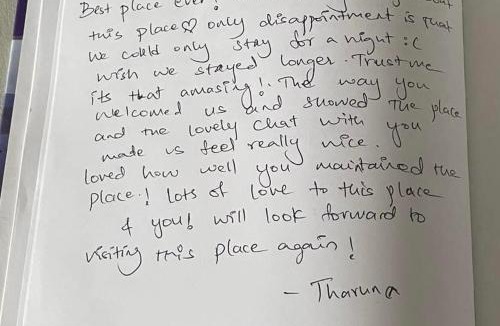 Best place ever!
this place♡ only disappointment is that
we could only stay for a night :(
wish we stayed longer. Trust me
its that amasing! The way you
welcomed us and showed the place
and the lovely chat with you
made us feel really nice.
loved how well you maintained the
place! lots of love to this place
& you! will look forward to
visiting this place again!
- Tharuna